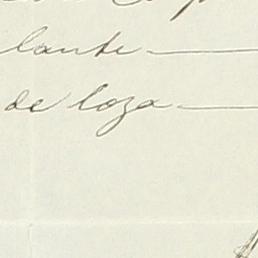 lante
de loza